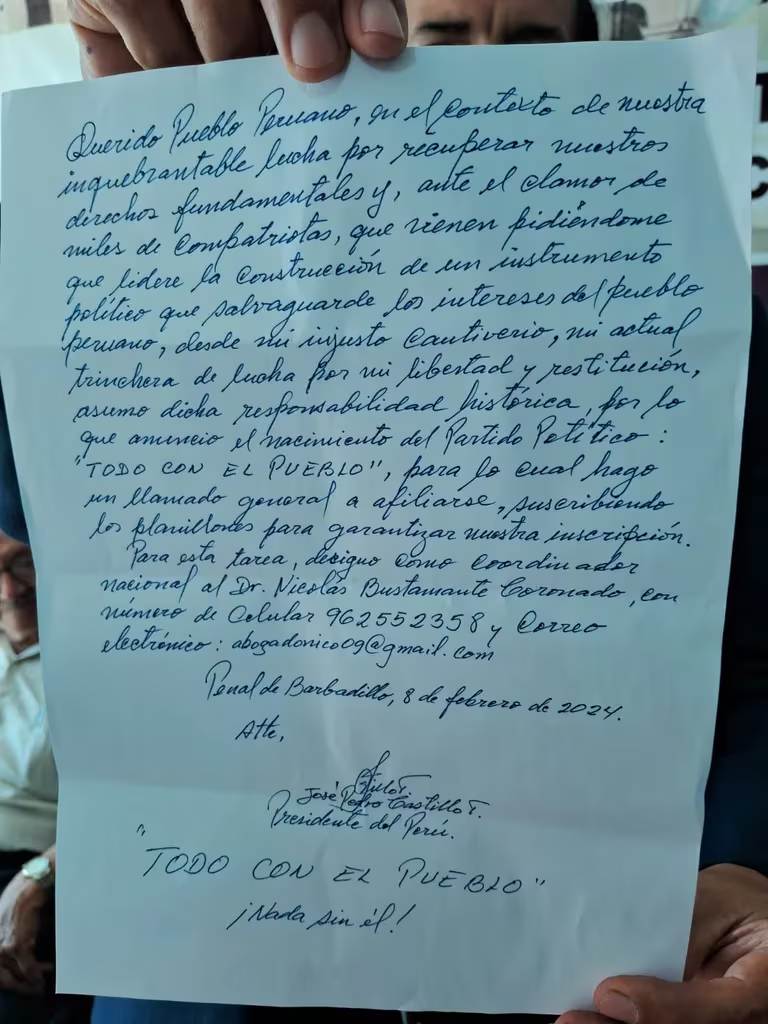 Querido Pueblo Peruano, en el contexto de nuestra
inquebrantable lucha por recuperar nuestros
derechos fundamentales y, ante el clamor de
miles de compatriotas, que vienen pidiéndome
que lidere la construcción de un instrumento
político que salvaguarde los intereses del pueblo
peruano, desde mi injusto cautiverio, mi actual
trinchera de lucha por mi libertad y restitución,
asumo dicha responsabilidad histórica, por lo
que anuncio el nacimiento del Partido Político:
"TODO CON EL PUEBLO", para lo cual hago
un llamado general a afiliarse, suscribiendo
los planillones para garantizar nuestra inscripción.
Para esta tarea, designo como coordinador
nacional al Dr. Nicolás Bustamante Coronado, con
número de Celular 962552358 y Correo
electrónico: abogadonico09@gmail.com
Penal de Barbadillo, 8 de febrero de 2024.
Atte,
José Pedro Castillo T.
Presidente del Perú.
"TODO CON EL PUEBLO"
¡Nada sin él!